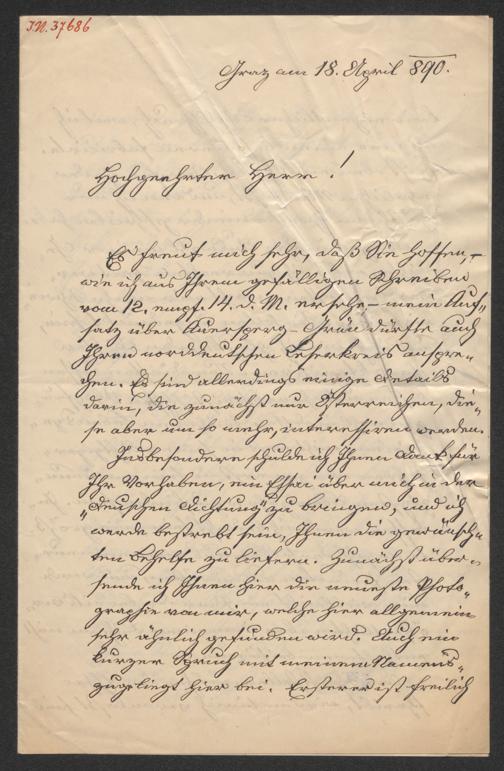 I.N. 37686
Graz am 18. April 890.
Hochgeehrter Herr!
Es freut mich sehr, daß Sie hoffen, –
wie ich aus Ihrem gefälligen Schreiben
vom 12. empf. 14. d. M. ersehe – mein Auf„
satz über Auersperg-Grün dürfte auch
Ihren norddeutschen Leserkreis anspre„
chen. Es sind allerdings einige Details
darin, die zunächst nur Österreichern, die„
se aber um so mehr, interessiren werden.
Insbesondere schulde ich Ihnen Dank für
Ihr Vorhaben, ein Essai über mich in der
„Deutschen Dichtung" zu bringen, und ich
werde bestrebt sein, Ihnen die gewünsch„
ten Behelfe zu liefern. Zunächst über„
sende ich Ihnen hier die neueste Photo„
graphie von mir, welche hier allgemein
sehr ähnlich gefunden wird. Auch ein
kurzer Spruch mit meinem Namens„
zuge liegt hier bei. Ersterer ist freilich